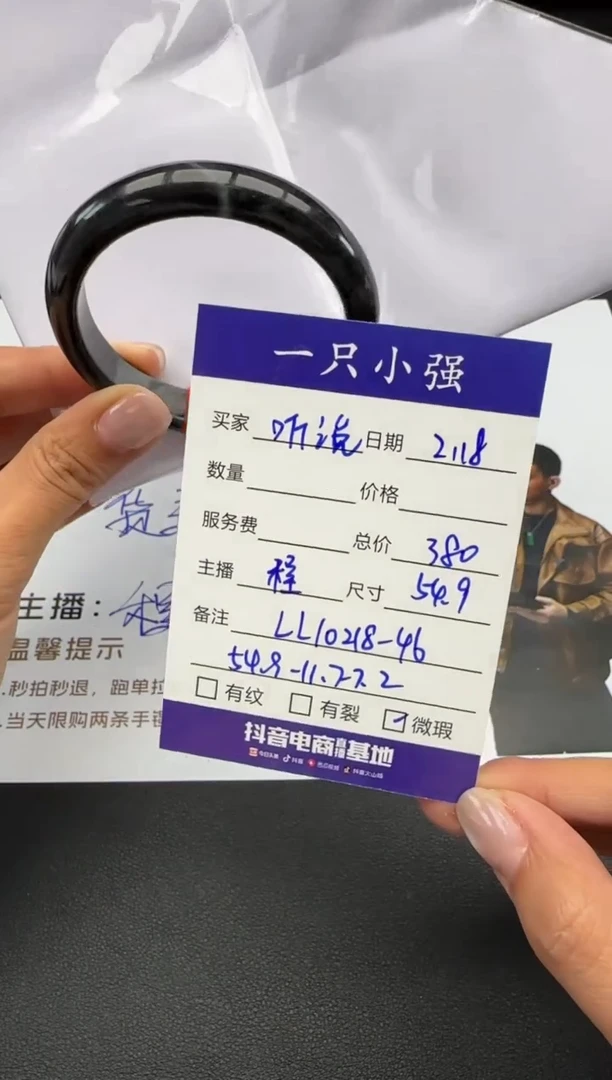 一只小强
买家 听说 日期 2.18
数量 价格
服务费 总价 380
主播 程 尺寸 54.9
备注 LL10218-46
54.9-11.7-7.2
有纹 有裂 微瑕
抖音电商直播基地
今日头条 抖音 西瓜视频 抖音火山版
主播: 程
温馨提示
.秒拍秒退，跑单拉
.当天限购两条手镯